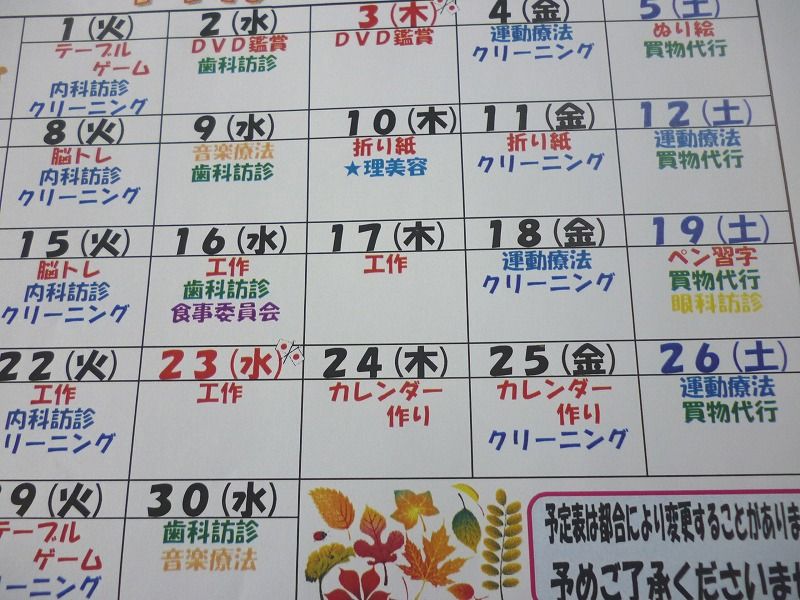 1(火) 2(水) 3(木) 4(金) 5(土)
テーブル ＤＶＤ鑑賞 ＤＶＤ鑑賞 運動療法 ぬり絵
ゲーム 歯科訪診 クリーニング 買物代行
内科訪診
クリーニング
8(火) 9(水) 10(木) 11(金) 12(土)
脳トレ 音楽療法 折り紙 折り紙 運動療法
内科訪診 歯科訪診 ★理美容 クリーニング 買物代行
クリーニング
15(火) 16(水) 17(木) 18(金) 19(土)
脳トレ 工作 工作 運動療法 ペン習字
内科訪診 歯科訪診 クリーニング 買物代行
クリーニング 食事委員会 眼科訪診
22(火) 23(水) 24(木) 25(金) 26(土)
工作 工作 カレンダー カレンダー 運動療法
内科訪診 作り 作り 買物代行
リーニング クリーニング
9(火) 30(水)
テーブル 歯科訪診
ゲーム 音楽療法
リーニング
予定表は都合により変更することがありま
予めご了承くださいませ